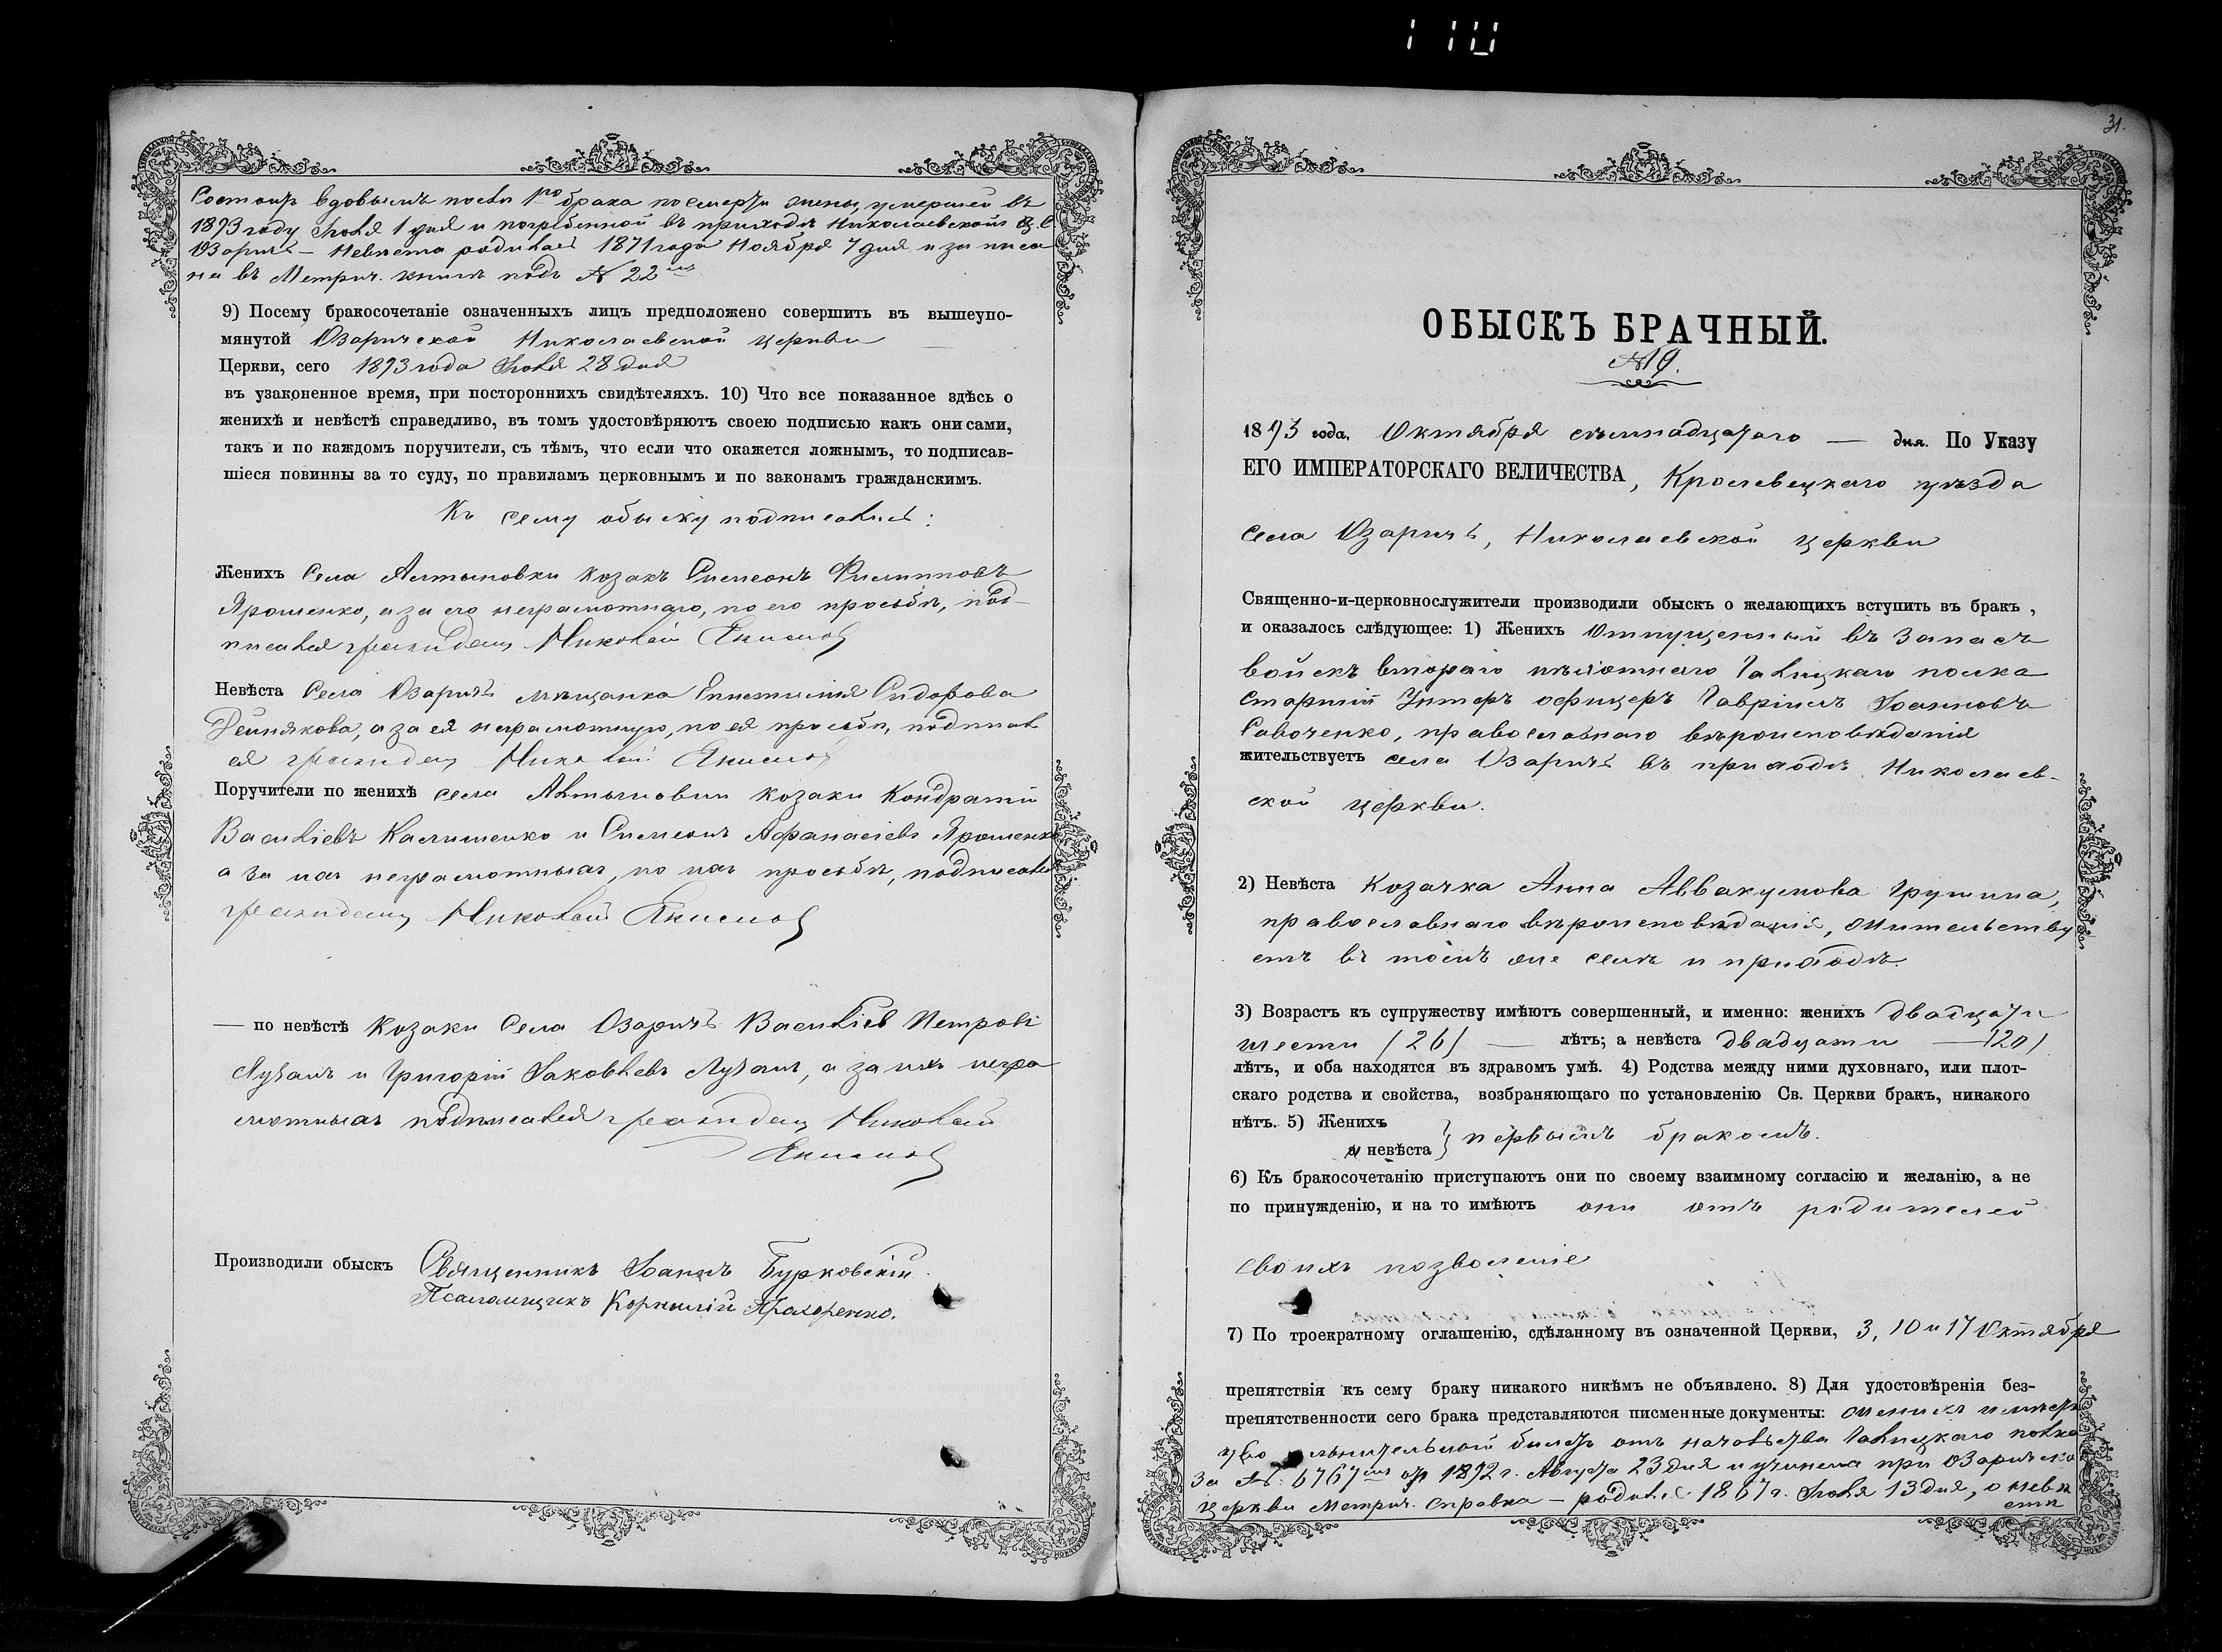 110
Состоитъ вдовымъ послѣ 1го брака по смерти жены, умершей въ
1893 году Іюля 1 дня и погребенной въ приходѣ Николаевской ц. с.
Озаричъ — Невѣста родилась 1871 года Ноября 7 дня и записа
на въ Метрич. книгѣ подъ № 22мъ
9) Посему бракосочетаніе означенныхъ лицъ предположено совершить въ вышеупо-
мянутой Озаричской Николаевской церкви
Церкви, сего 1893 года Іюля 28 дня
въ узаконенное время, при постороннихъ свидѣтеляхъ. 10) Что все показанное здѣсь о
женихѣ и невѣстѣ справедливо, въ томъ удостовѣряютъ своею подписью какъ они сами,
такъ и по каждомъ поручители, съ тѣмъ, что если что окажется ложнымъ, то подписав-
шіеся повинны за то суду, по правиламъ церковнымъ и по законамъ гражданскимъ.
Къ сему обыску подписались:
Женихъ Села Алтыновки козакъ Симеонъ Филипповъ
Ярошенко, а за его неграмотнаго, по его просьбѣ, под-
писался гражданинъ Николай Якимов
Невѣста Села Озаричъ мѣщанка Епистимія Сидорова
а за ея неграмотную, по ея просьбѣ, подписал
ся гражданинъ Николай Якимов
Поручители по женихѣ села Алтыновки козаки Кондратій
Василіевъ Калишенко и Симеонъ Афанасіевъ Ярошенко
а за ихъ неграмотныхъ, по ихъ просьбѣ, подписался
гражданинъ Николай Якимов
— по невѣстѣ Козаки Села Озаричъ Василій Петровъ
и Григорій Іаковлевъ а за ихъ негра
мотныхъ подписался гражданинъ Николай
Якимов
Производили обыскъ Священникъ Іоаннъ Бурковскій
Псаломщикъ Корнилій Прахоренко.
31.
ОБЫСКЪ БРАЧНЫЙ.
№ 19.
1893 года, Октября семнадцатаго — дня. По Указу
ЕГО ИМПЕРАТОРСКАГО ВЕЛИЧЕСТВА, Кролевецкаго уѣзда
села Озаричъ, Николаевской церкви
Священно-и-церковнослужители производили обыскъ о желающихъ вступить въ бракъ,
и оказалось слѣдующее: 1) Женихъ Отпущенный въ Запасъ
войскъ втораго пѣхотнаго Галицкаго полка
старшій Унтеръ офицеръ Гавріилъ Іоанновъ
Савоченко, православнаго вѣроисповѣданія
жительствуетъ села Озаричъ въ приходѣ Николаев-
ской церкви.
2) Невѣста Козачка Анна Аввакумова
православнаго вѣроисповѣданія, жительству
етъ въ томъ же селѣ и приходѣ.
3) Возрастъ къ супружеству имѣютъ совершенный, и именно: женихъ двадцати
шести (26) — лѣтъ; а невѣста двадцати — (20)
лѣтъ, и оба находятся въ здравомъ умѣ. 4) Родства между ними духовнаго, или плот-
скаго родства и свойства, возбраняющаго по установленію Св. Церкви бракъ, никакого
нѣтъ. 5) Женихъ
и невѣста } первымъ бракомъ.
6) Къ бракосочетанію приступаютъ они по своему взаимному согласію и желанію, а не
по принужденію, и на то имѣютъ они отъ родителей
своихъ позволеніе
7) По троекратному оглашенію, сдѣланному въ означенной Церкви, 3, 10 и 17 Октября
препятствія къ сему браку никакого никѣмъ не объявлено. 8) Для удостовѣренія без-
препятственности сего брака представляются писменные документы: женихъ имѣетъ
билетъ отъ начальства Галицкаго полка
за №: 6767мъ отъ 1892 г. Августа 23 дня и учинена при Озаричской
церкви Метрич. справка — родился 1867 г. Іюля 13 дня, о невѣ
стѣ